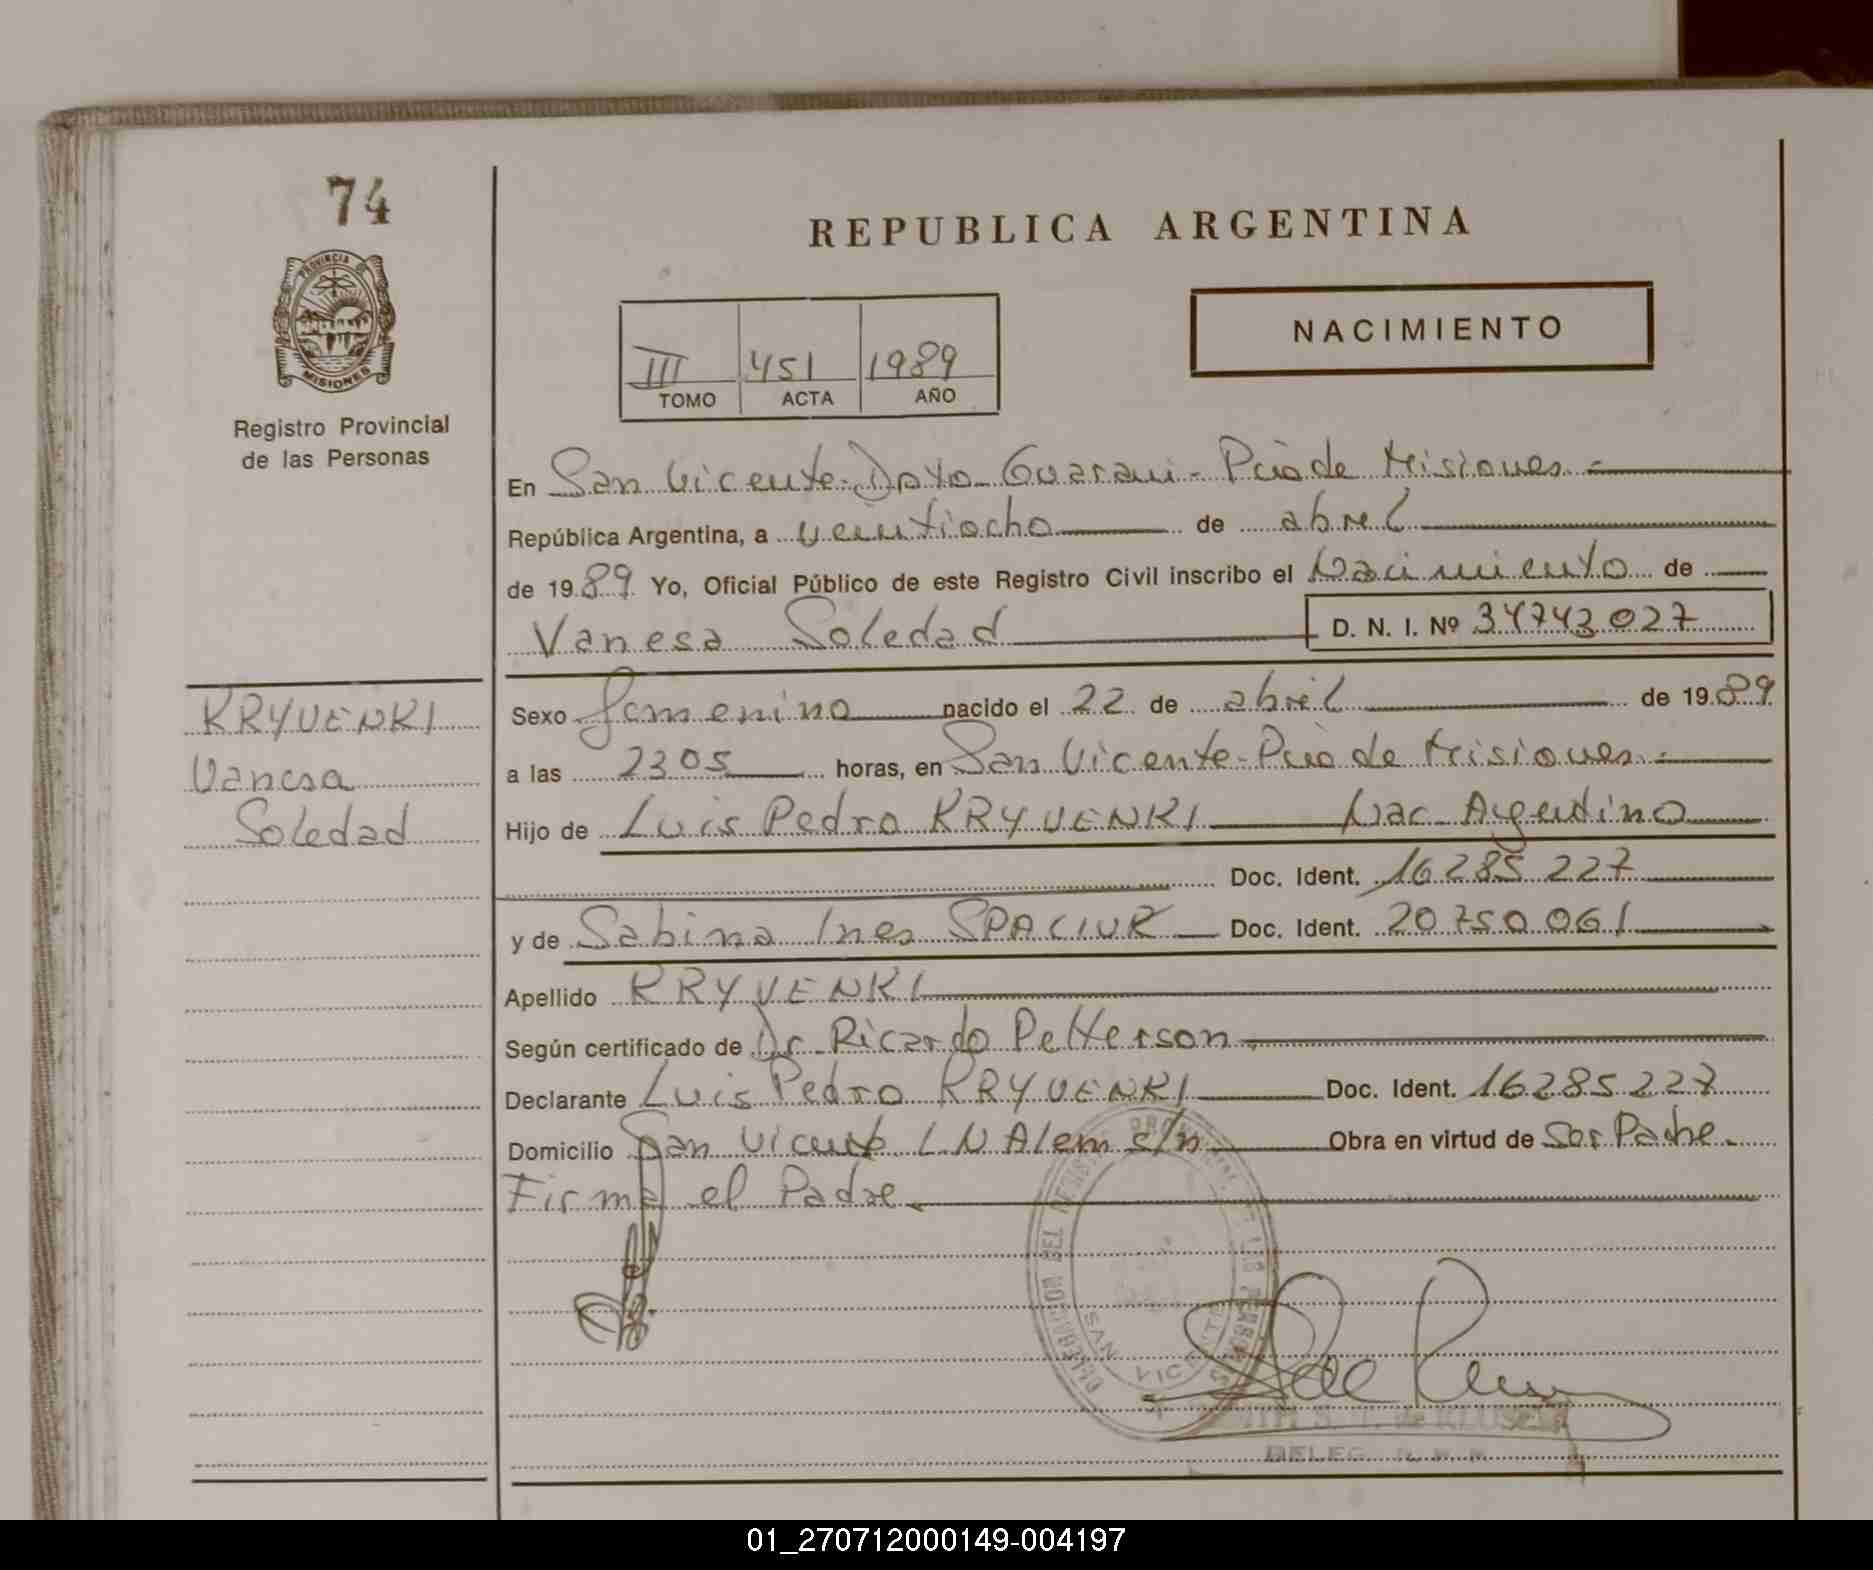 74
PROVINCIA DE
MISIONES
Registro Provincial
de las Personas
REPUBLICA ARGENTINA
NACIMIENTO
III 451 1989
TOMO ACTA AÑO
En San Vicente-Dpto Guarani-Pcia de Misiones
República Argentina, a veintiocho de abril
de 1989 Yo, Oficial Público de este Registro Civil inscribo el Nacimiento de
Vanesa Soledad D. N. I. Nº 34743027
KRYVENKI
Vanesa
Soledad
Sexo femenino nacido el 22 de abril de 1989
a las 2305 horas, en San Vicente-Pcia de Misiones
Hijo de Luis Pedro KRYVENKI Nac Argentino
Doc. Ident. 16285227
y de Sabina Ines SPACIUK Doc. Ident. 20750061
Apellido KRYVENKI
Según certificado de Dr. Ricardo Petterson
Declarante Luis Pedro KRYVENKI Doc. Ident. 16285227
Domicilio San Vicente L N Alem s/n Obra en virtud de Ser Padre
Firma el Padre
DELEGACION DEL REGISTRO PROVINCIAL DE LAS PERSONAS
SAN VICENTE
DELEG.
01_270712000149-004197